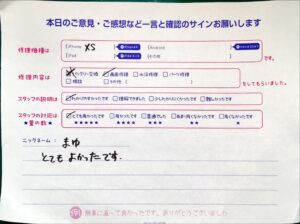 本日のご意見・ご感想など一言と確認のサインお願いします
修理機種は
iPhone XS
Android
iPad
その他
です。
修理内容は
バッテリー交換 画面修理 水没修理 パーツ修理
相談 その他
をしてもらいました。
スタッフの説明は
わかりやすかったです 理解できました 少しわかりにくかったです 難しかったです
スタッフの対応は
★星の数★
とても良かったです 良かったです 普通でした あまり良くなかったです 良くなかったです
★★★★★ ★★★★ ★★★ ★★ ★
ニックネーム: まゆ
とても よかったです.
無事に直って良かったです。ありがとうございました